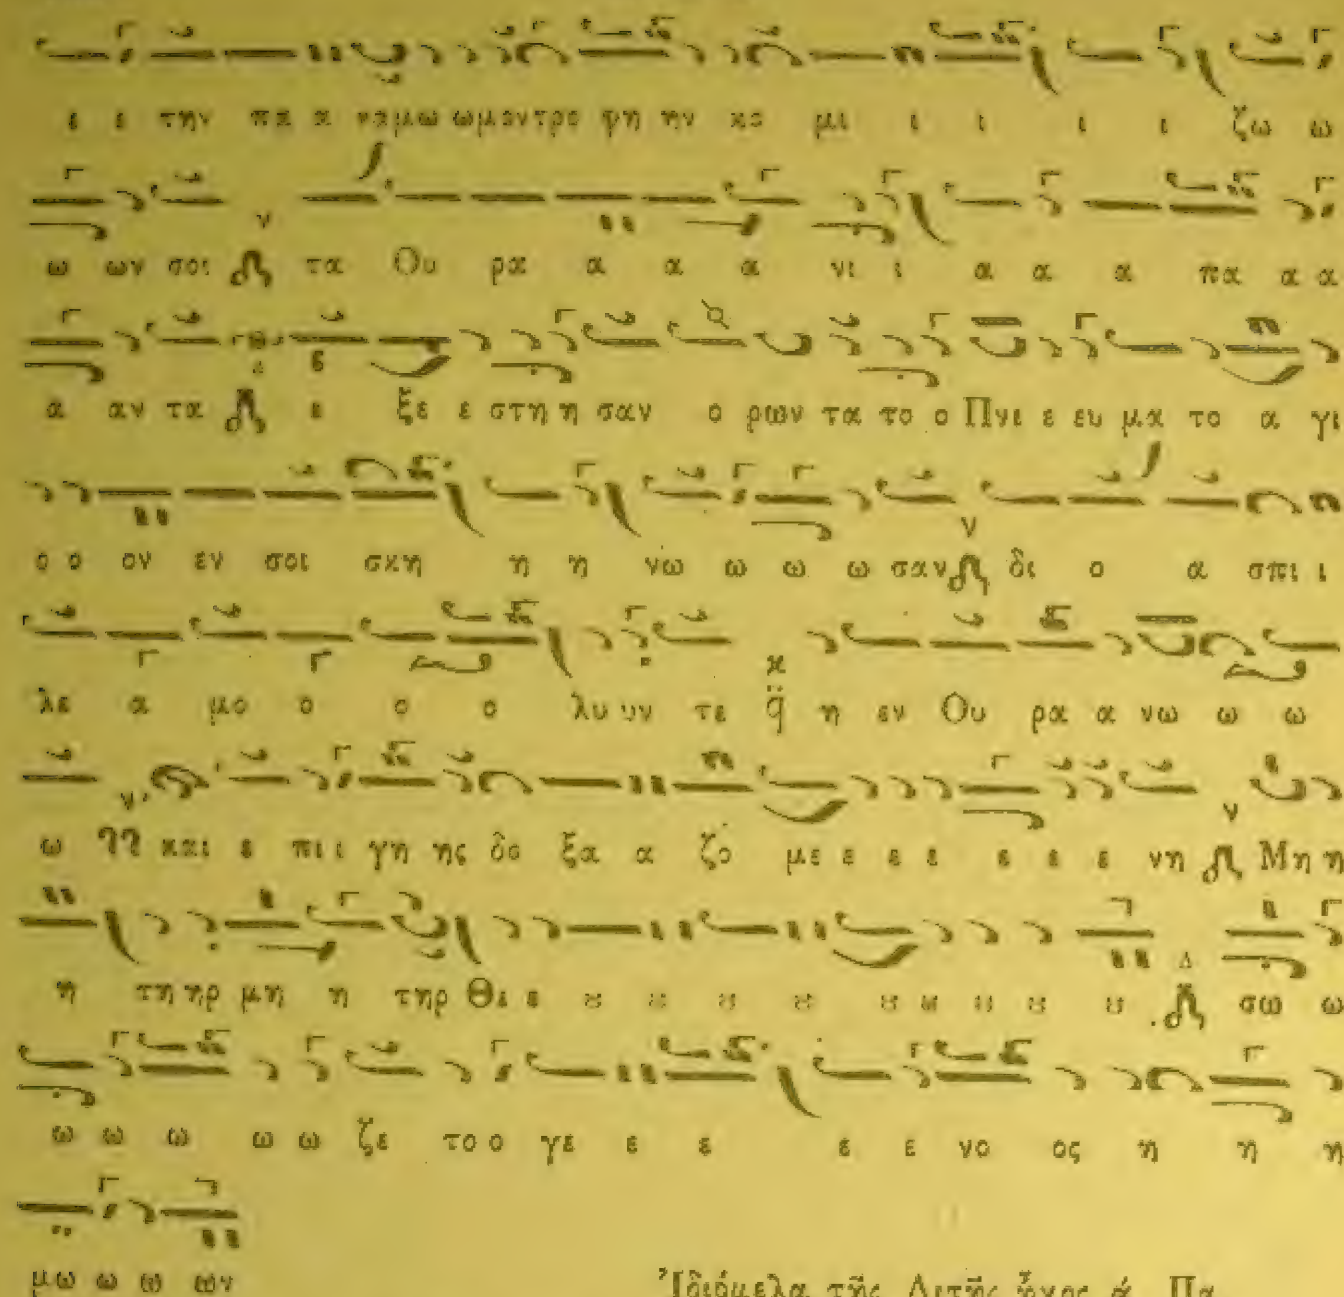 ε ε την πα α ναμω ωμοντρο φη ην κο μι ι ι ι ι ζω ω
ω ων σοι τα Ου ρα α α α νι ι α α α πα α α
α αν τα ε ξε ε στη η σαν ο ρων τα το ο Πνε ε ευ μα το α γι
ο ο ον εν σοι σκη η η νω ω ω ω σαν δι ο α σπι ι
λε α μο ο ο ο λυ υν τε η εν Ου ρα α νω ω ω
ω και ε πι ι γη ης δο ξα α ζο με ε ε ε ε ε ε νη Μη η
η τη ηρ μη η τηρ Θε ε ȣ ȣ ȣ ȣ ȣ ȣ ȣ ȣ ȣ σω ω
ω ω ω ω ω ζε το ο γε ε ε ε ε νο ος η η η
μω ω ω ων
Ἰδιόμελα τῆς Λιτῆς ἦχος ά Πα